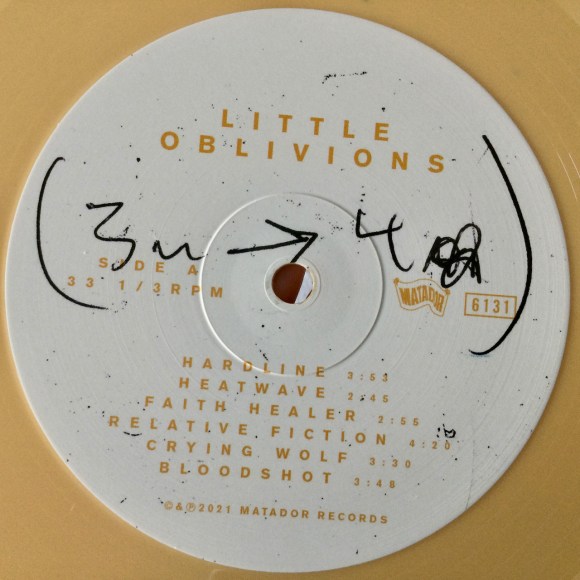 LITTLE
OBLIVIONS
SIDE A
33 1/3 RPM
MATADOR
6131
HARDLINE 3:53
HEATWAVE 2:45
FAITH HEALER 2:55
RELATIVE FICTION 4:20
CRYING WOLF 3:30
BLOODSHOT 3:48
©&℗2021 MATADOR RECORDS